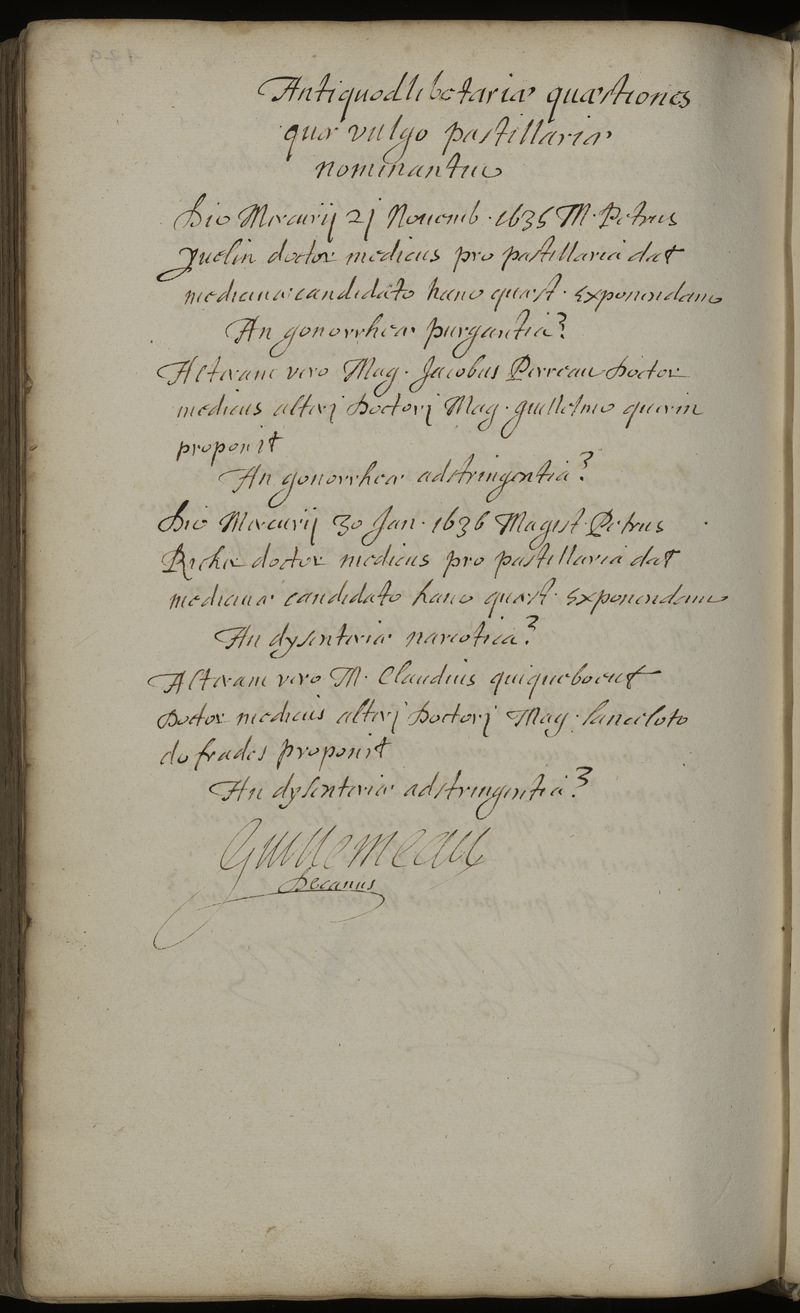 Antiquodlibetariæ quæstiones
quæ vulgo pastillariæ
nominantur
Die Mercurij 21 Nouemb. 1635 M. Petrus
Yuelin doctor medicus pro pastillaria dat
medicinæ candidato hanc quæst. exponendam
An gonorrheæ purgantia?
Alteram vero Mag. Jacobus Perreau doctor
medicus alterj doctorj Mag. guillelmo
proponit
An gonorrheæ adstringentia?
Die Mercurij 30 Jan. 1636 Magist. Petrus
Richer doctor medicus pro pastillaria dat
medicinæ candidato hanc quæst. exponendam
An dysenteriæ narcotica?
Alteram vero M. Claudius quiqueboeuf
Doctor medicus alterj doctorj Mag. lanceloto
de frades proponit
An dysenteriæ adstringentia?
Guillemeau
Decanus